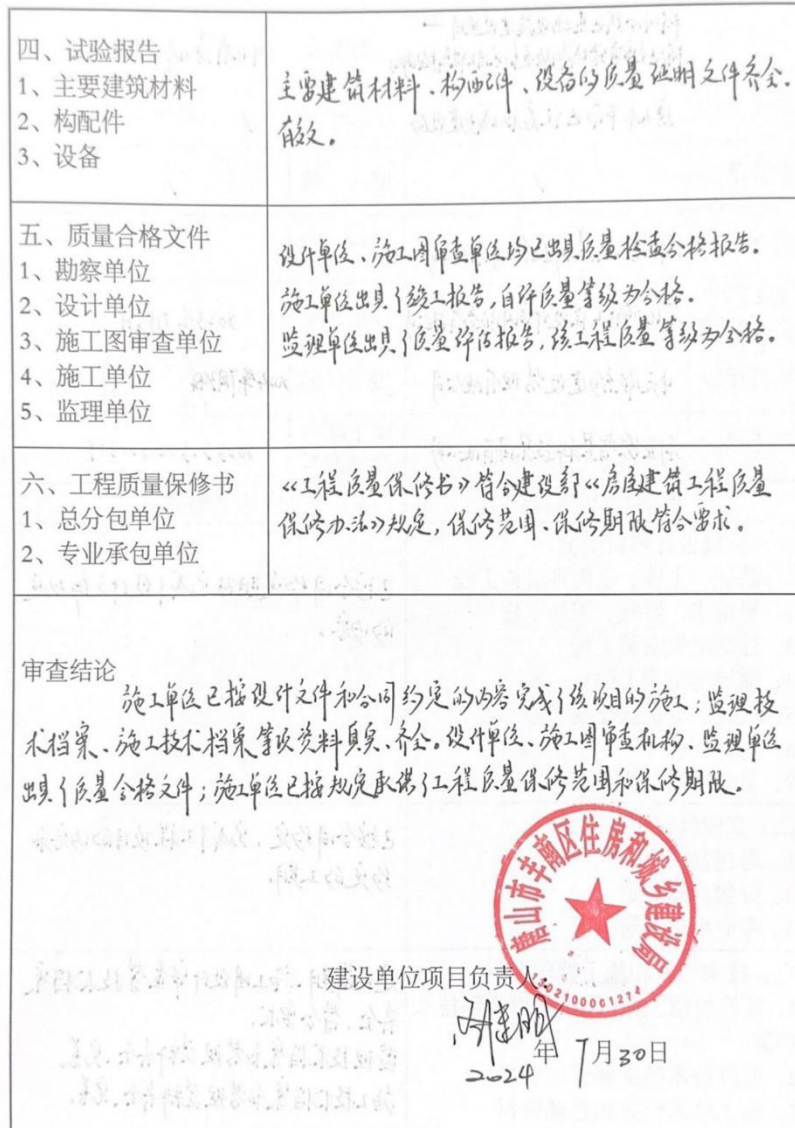 四、试验报告
1、主要建筑材料
2、构配件
3、设备
主要建筑材料、构配件、设备的质量证明文件齐全、
有效。
五、质量合格文件
1、勘察单位
2、设计单位
3、施工图审查单位
4、施工单位
5、监理单位
设计单位、施工图审查单位均已出具质量检查合格报告。
施工单位出具了竣工报告，自评质量等级为合格。
监理单位出具了质量评估报告，该工程质量等级为合格。
六、工程质量保修书
1、总分包单位
2、专业承包单位
《工程质量保修书》符合建设部《房屋建筑工程质量
保修办法》规定，保修范围、保修期限符合要求。
审查结论
施工单位已按设计文件和合同约定的内容完成了该项目的施工；监理技
术档案、施工技术档案等资料真实、齐全。设计单位、施工图审查机构、监理单位
出具了质量合格文件；施工单位已按规定承诺了工程质量保修范围和保修期限。
唐山市丰南区住房和城乡建设局
建设单位项目负责人：
2024年 7月30日